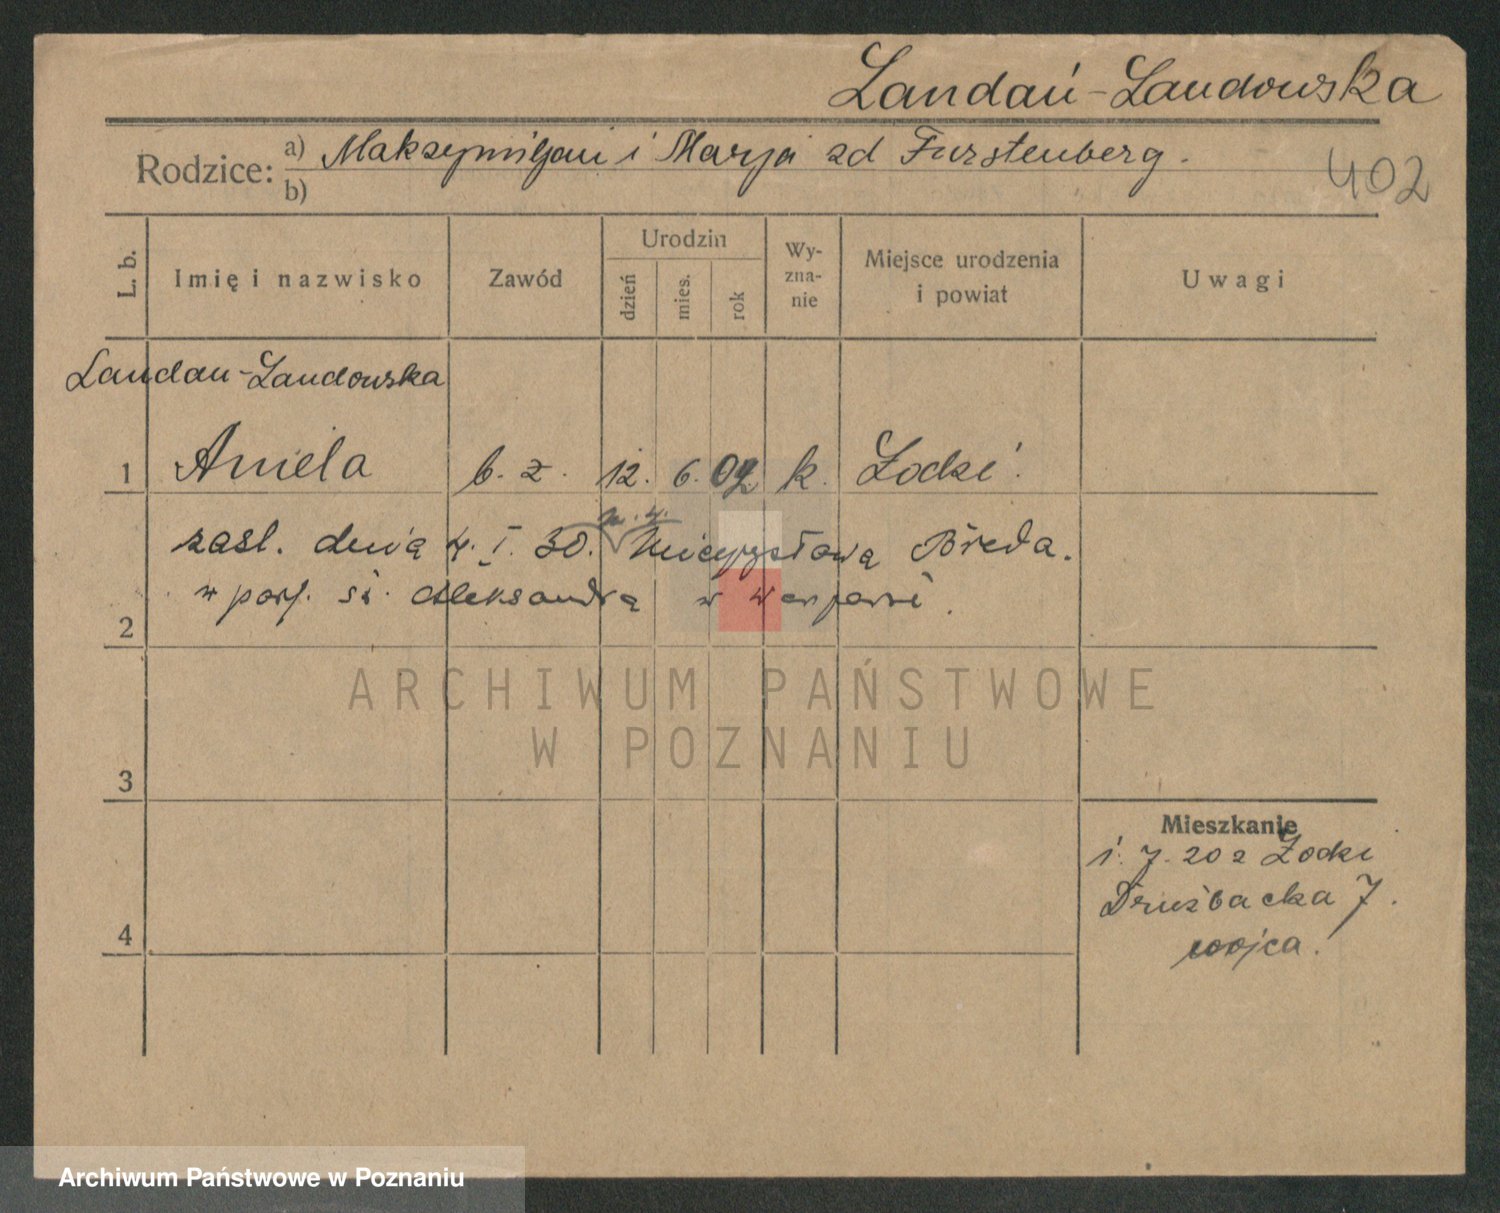 Landau-Landowska
Rodzice: a) Maksymiljan i Marja zd Furstenberg.
b)
402
L. b.
Imię i nazwisko
Zawód
Urodzin
dzień
mies.
rok
Wy-
zna-
nie
Miejsce urodzenia
i powiat
Uwagi
Landau-Landowska
1 Aniela b. z. 12. 6. 02 k. Łodzi
zaśl. dnia 4. I. 30. Mieczysława Breda.
w par. św. Aleksandra w
2
3
4
Mieszkanie
7. 20 z Łodzi
Drużbacka 7.
uojca.
ARCHIWUM PAŃSTWOWE
W POZNANIU
Archiwum Państwowe w Poznaniu